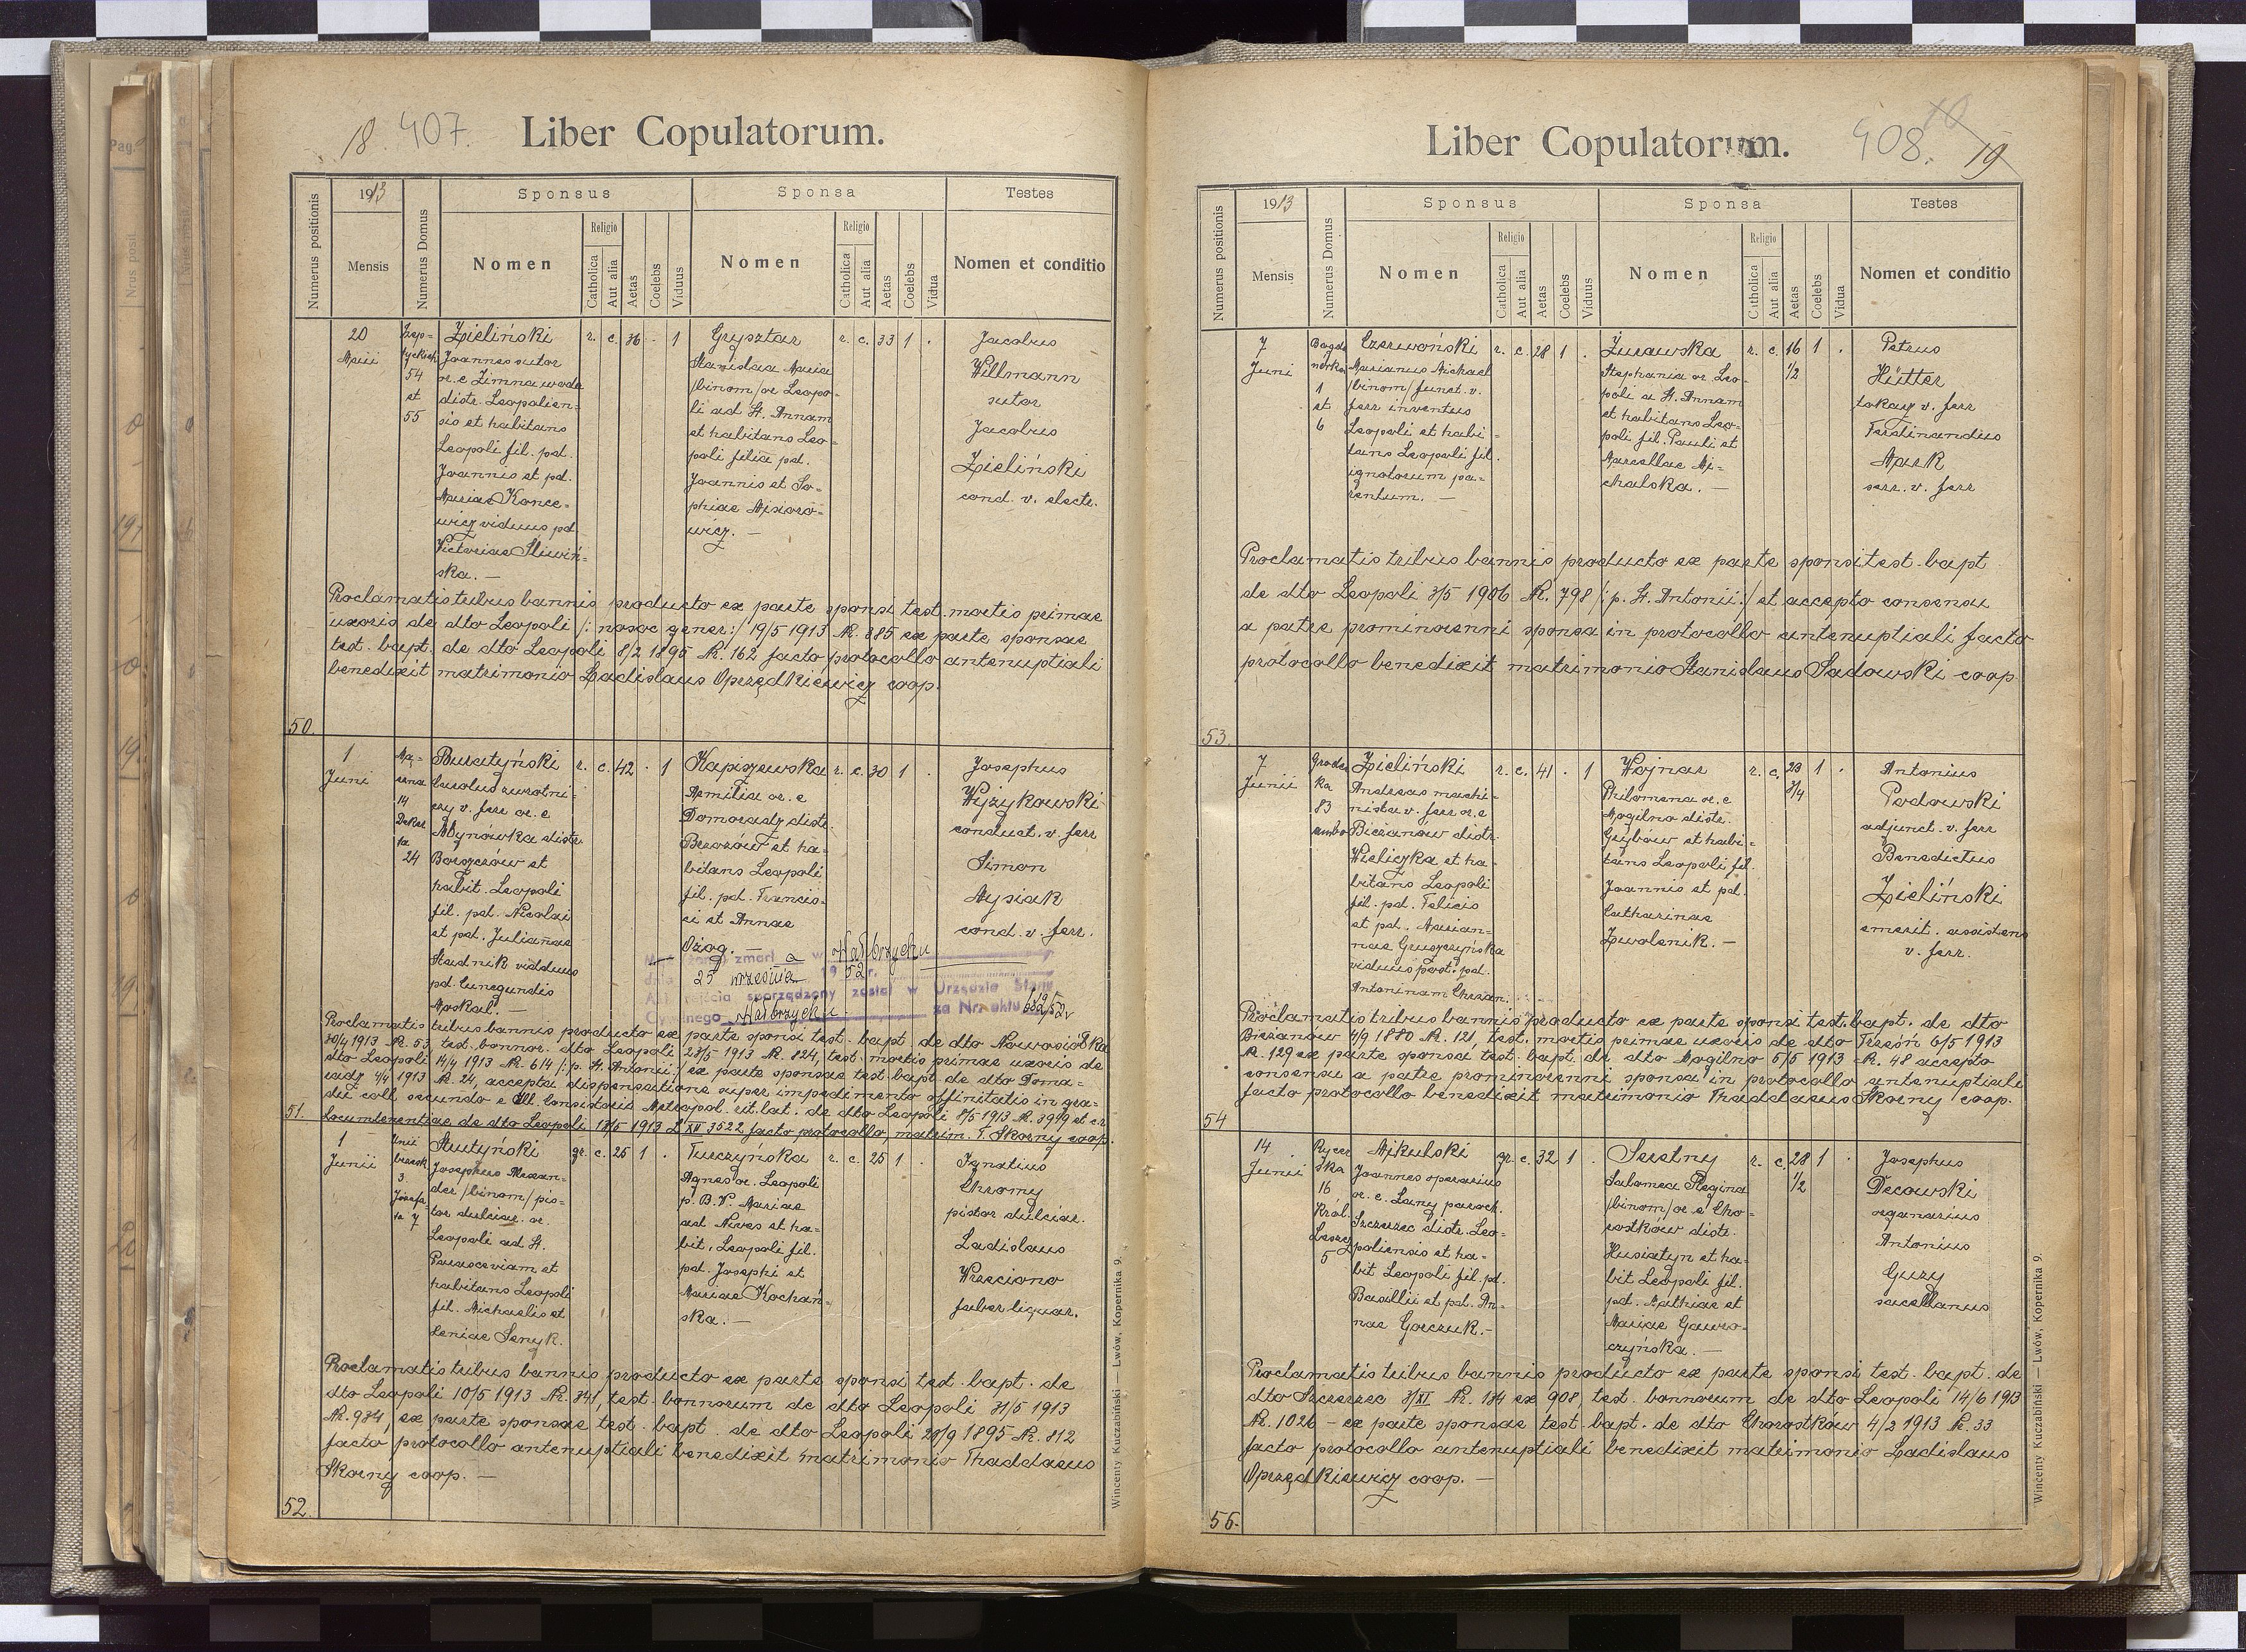 18. 407. Liber Copulatorum.
Numerus positionis
1913
Mensis
Numerus Domus
Sponsus
Nomen
Religio
Catholica
Aut alia
Aetas
Coelebs
Viduus
Sponsa
Nomen
Religio
Catholica
Aut alia
Aetas
Coelebs
Vidua
Testes
Nomen et conditio
20
Maii
Szep-
tyckich
54
et
55
Zieliński
Joannes sutor
or. e Zimna woda
distr. Leopolien-
sis et habitans
Leopoli fil. pd.
Joannis et pd.
Mariae Konce-
wicz viduus pd.
Victoriae Śliwiń-
ska. —
r. c. 36 - 1
Grysztar
Stanislaa Maria
/binom/ or. Leopo-
li ad St. Annam
et habitans Leo-
poli filia pd.
Joannis et So-
phiae Moxoro-
wicz. —
r. c. 33 1 .
Jacobus
Willmann
sutor
Jacobus
Zieliński
cond. v. electr.
Proclamatis tribus bannis producto ex parte sponsi test. mortis primae
uxoris de dto Leopoli /: nosoc gener:/ 19/5 1913 Nr. 885 ex parte sponsae
test. bapt. de dto Leopoli 8/2 1895 Nr. 162 facto protocollo antenuptiali
benedixit matrimonio Ladislaus Oprzędkiewicz coop.
50.
1
Juni
14
24
Buratyński
Carolus zwrotni-
czy v. ferr or. e
Młynówka distr.
Borszczów et
habit. Leopoli
fil. pd. Nicolai
et pd. Julianae
Stadnik viduus
pd. Cunegundis
Moskal. —
r. c. 42 . 1
Kapiszewska
Aemilia or. e
Domoradz distr.
Brzozów et ha-
bitans Leopoli
fil. pd. Francis-
ci et Annae
Ożog. —
r. c. 30 1 .
Josephus
Wyżykowski
conduct. v. ferr
Simon
Mysiak
cond. v. ferr.
zmarł a w Wałbrzychu
dnia 25 września 1952 r.
Akt zejścia sporządzony został w Urzędzie Stanu
Cywilnego Wałbrzychu za Nr. aktu
Proclamatis tribus bannis producto ex parte sponsi test. bapt de dto Nowosiołka
30/4 1913 Nr. 53, test. bonnor. dto Leopoli 23/5 1913 Nr. 824, test. mortis primae uxoris de
dto Leopoli 14/4 1913 Nr. 614 /: p. St. Antonii:/ ex parte sponsae test. bapt. de dto Doma-
radz 4/4 1913 Nr. 24, accepta dispensatione super impedimento affinitatis in gra-
du coll. secundo e Ill. Consistorii Metropol. rit. lat. de dto Leopoli 8/5 1913 Nr. 3979 et c.r.
51. Locumtenentiae de dto Leopoli 13/5 1913 L XII 3522 facto protocollo, matrim. T. Skorny coop.
1
Junii
3
7
Strutyński
Josephus Alexan-
der /binom/ pis-
tor dulciar. or.
Leopoli ad St.
Parasceviam et
habitans Leopoli
fil. Michaelis et
Seniae Senyk.
gr. c. 25 1 .
Turczyńska
Agnes or. Leopoli
p. B. V. Mariae
ad Nives et ha-
bit. Leopoli fil.
pd. Josephi et
Mariae Kochań-
ska. —
r. c. 25 1 .
Ignatius
Chromy
pistor dulciar.
Ladislaus
Wrzeciono
faber liquar.
Proclamatis tribus bannis producto ex parte sponsi test. bapt. de
dto Leopoli 10/5 1913 Nr. 341, test. bonnorum de dto Leopoli 31/5 1913
Nr. 934, ex parte sponsae test. bapt. de dto Leopoli 20/9 1895 Nr. 812
facto protocollo antenuptiali benedixit matrimonio Thaddaeus
Skorny coop. —
52.
Wincenty Kuczabiński — Lwów, Kopernika 9.
Liber Copulatorum. 408. 19
Numerus positionis
1913
Mensis
Numerus Domus
Sponsus
Nomen
Religio
Catholica
Aut alia
Aetas
Coelebs
Viduus
Sponsa
Nomen
Religio
Catholica
Aut alia
Aetas
Coelebs
Vidua
Testes
Nomen et conditio
7
Juni
Bogda
nówka
1
et
6
Czerwoński
Marianus Michael
/binom/ funct. v.
ferr inventus
Leopoli et habi-
tans Leopoli fil.
ignotorum pa-
rentum. —
r. c. 28 1 .
Żurawska
Stephania or. Leo-
poli a St. Annam
et habitans Leo-
poli fil. Pauli et
Marcellae Mi-
chalska. —
r. c. 16 1/2 1 .
Petrus
Hütter
tokarz v. ferr
Ferdinandus
Mark
serr. v. ferr
Proclamatis tribus bannis producto ex parte sponsi test. bapt
de dto Leopoli 3/5 1906 Nr. 798 /: p. St. Antonii:/ et accepto consensu
a patre prominorenni sponsa in protocollo antenuptiali facto
protocollo benedixit matrimonio Stanislaus Sadowski coop.
53.
7
Junii
Grodec
ka
83
ambo
Zieliński
Andreas machi-
nista v. ferr or. e
Bieżanów distr.
Wieliczka et ha-
bitans Leopoli
fil. pd. Felicis
et pd. Marian-
nae Gruszczyńska
viduus post. pd.
Antoninam Chrzan.
r. c. 41 . 1
Wojnar
Philomena or. e
Mogilno distr.
Grybów et habi-
tans Leopoli fil.
Joannis et pd.
Catharinae
Zwolenik. —
r. c. 23 3/4 1 .
Antonius
Podowski
adjunct. v. ferr
Benedictus
Zieliński
emerit. assistens
v. ferr.
Proclamatis tribus bannis producto ex parte sponsi test. bapt. de dto
Bieżanów 4/9 1880 Nr. 121, test. mortis primae uxoris de dto Trzoń 6/5 1913
Nr. 129 ex parte sponsa, test. bapt. de dto Mogilno 5/5 1913 Nr. 48 accepto
consensu a patre prominorenni sponsa in protocollo antenuptiali
facto protocollo benedixit matrimonio Thaddaeus Skorny coop.
54
14
Junii
Rycer
ska
16
Król.
Leszcz
5
Mikulski
Joannes operarius
or. e. Łany paroch.
Szczerzec distr. Leo-
poliensis et ha-
bit Leopoli fil. pd.
Basilii et pd. An-
nae Gorczuk. —
gr. c. 32 1 .
Szretny
Salomea Regina
/binom/ or e Cho-
rostków distr.
Husiatyn et ha-
bit Leopoli fil.
pd. Mathiae et
Mariae Gawro-
czyńska. —
r. c. 28 1/2 1 .
Josephus
Decowski
organarius
Antonius
Guzy
sacellanus
Proclamatis tribus bannis producto ex parte sponsi test. bapt. de
dto Szczerzec 3/XI Nr. 134 ex 908, test. bonnorum de dto Leopoli 14/6 1913
Nr. 1026 — ex parte sponsae test. bapt. de dto Chorostków 4/2 1913 Nr. 33
facto protocollo antenuptiali benedixit matrimonio Ladislaus
Oprzędkiewicz coop. —
55.
Wincenty Kuczabiński — Lwów, Kopernika 9.